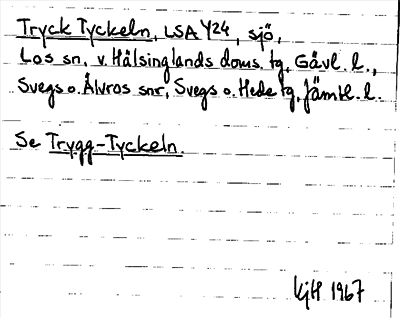 Tryck Tyckeln, LSA Y24, sjö,
Los sn, v. Hälsinglands doms. tg, Gävl. l.,
Svegs o. Älvros snr, Svegs o. Hede tg, Jämtl. l.
Se Trygg-Tyckeln.
KjH 1967